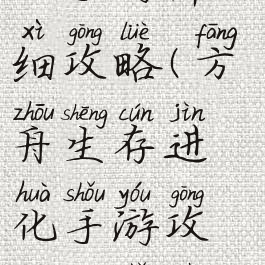 xì gōng lüè fāng
细攻略(方
zhōu shēng cún jìn
舟生存进
huà shǒu yóu gōng
化手游攻